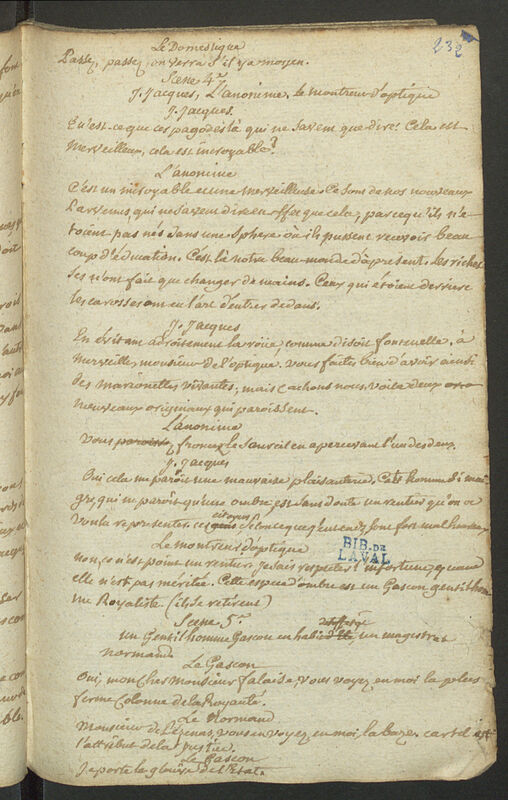 232
Le Domestique
Passez, passez, on verra s'il y a moyen.
Scene 4e
J. Jacques, L'anonime, le montreur d'optique
J. Jacques.
Qu'est-ce que ces pagodes là qui ne savent que dire: Cela est
merveilleux, cela est incroyable?
L'anonime
C'est un incroyable et une merveilleuse. Ce sont de nos nouveaux
Parvenus, qui ne savent dire en effet que cela, parcequ'ils n'é-
toient pas nés dans une sphere où ils pussent recevoir beau
coup d'éducation. C'est là notre beau monde d'à present. Les riches
ses n'ont fait que changer de mains. Ceux qui étoient derriere
les carosses ont eu l'art d'entrer dedans.
J. Jacques
En évitant adroitement la roüe comme disoit fontenelle. à
merveille, monsieur de l'optique. vous faites bien d'avoir ainsi
des marionettes vivantes; mais cachons nous. voila deux
nouveaux originaux qui paroissent.
L'anonime
vous froncez le sourcil en apercevant l'un des deux.
J. Jacques
Oui cela me paroit une mauvaise plaisanterie. Cet homme si mai
gre, qui ne paroît qu'une ombre est sans doute un rentier qu'on a
voulu representer. ces citoyens selon ce que j'entends sont fort malheureux
Le montreur d'optique
non ce n'est point un rentier. je sais respecter l'infortune, quand
elle n'est pas méritée. Cette espece d'ombre est un Gascon gentilhom
me Royaliste (ils se retirent)
Scene 5e
un Gentilhomme Gascon en habit un magistrat
normand
Le Gascon
Oui, mon cher monsieur falaise, vous voyez en moi la plus
ferme colonne de la Royauté.
Le Normand
Monsieur de Pézenas, vous en voyez en moi la baze. car tel est
l'attribut de la justice.
Le Gascon
Je porte la gloire de l'Etat.
BIB. DE
LAVAL